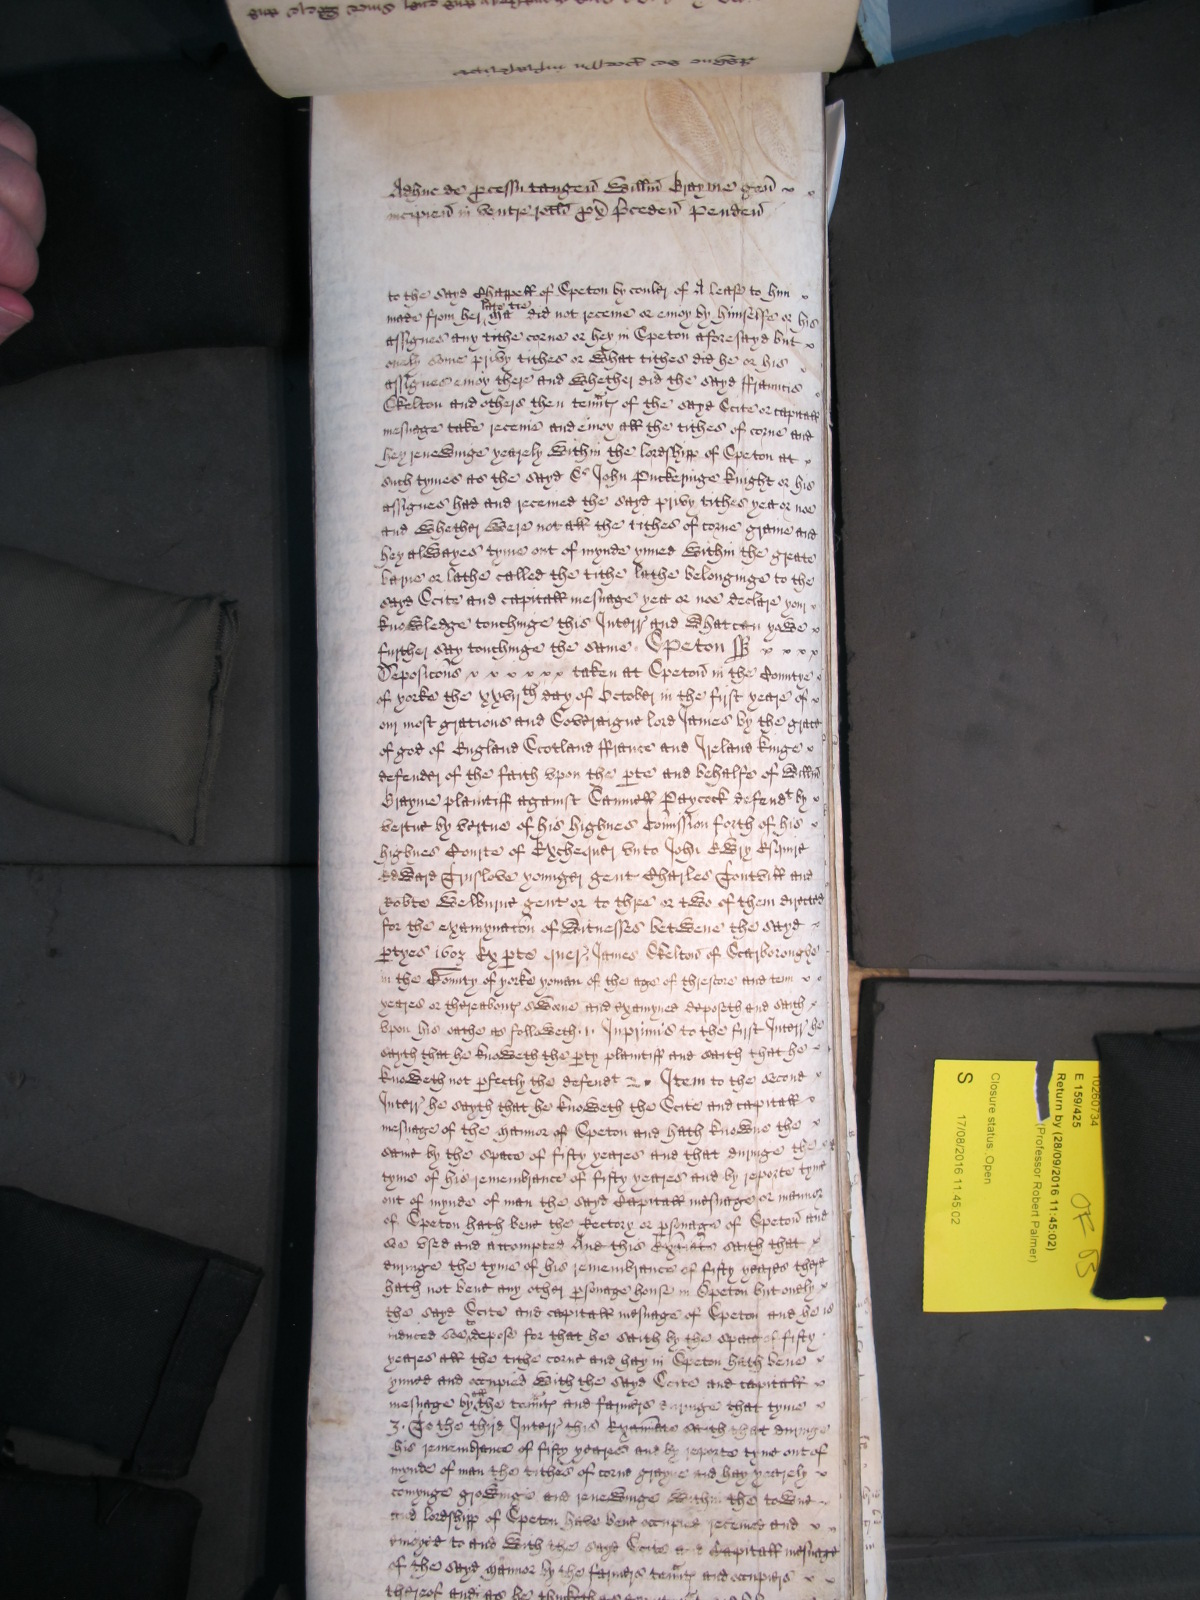 Adhuc de processu tangen Willm Brayme gen
incipien in ventre rotli prox preceden penden
to the sayd Chappell of Speton by couler of A lease to him
made from her late Ma^tie did not receive or enioy by himselfe or his
assignes any tithe corne or hey in Speton aforesayd but
onely some privy tithes or what tithes did he or his
assignes enioy there and whether did the sayd ffrauncis
Skelton and others then tennts of the sayd Scite or capitall
mesuage take receive and enioy all the tithes of corne and
hey renewinge yearely within the lordshipp of Speton at
such tymes as the sayd Sr John Puckeringe knight or his
assignes had and received the sayd privy tithes yea or noe
and whether were not all the tithes of corne graine and
hey alwayes tyme out of mynde ynned within the greate
barne or lathe called the tithe lathe belonginge to the
sayd Scite and capitall mesuage yea or noe declare your
knowledge touchinge this Interr and what can yowe
further say touchinge the same Speton ss
Deposicons taken at Speton in the Countye
of yorke the xxvi^th day of October in the first yeare of
our most gratious and Soveraigne lord James by the grace
of god of England Scotland ffrance and Ireland kinge
defender of the faith vpon the pte and behalfe of Willm
Brayme plaintiff against Paycock defend^t by
vertue by vertue of his highnes Comission forth of his
highnes Courte of Exchequer vnto John Esquire
Edward Truslove younger gent Charles and
Robte Welburne gent or to three or two of them directed
for the examynacon of witnesses betwene the sayd
ptyes 1603 Ex pte quer James Skelton of Scarboroughe
in the County of yorke yoman of the age of threscore and tenn
yeares or thereabouts sworne and examyned deposeth and saith
vpon his oathe as followeth 1. Inprimis to the first Interr he
saith that he knoweth the pty plaintiff and saith that he
knoweth not pfectly the defend^t 2. Item to the second
Interr he sayth that he knoweth the Scite and capitall
mesuage of the mannor of Speton and hath knowne the
same by the space of fifty yeares and that duringe the
tyme of his remembrance of fifty yeares and by reporte tyme
out of mynde of man the sayd Capitall mesuage or mannor
of Speton hath bene the Rectory or psonage of Speton and
soe vsed and accompted And this Examinate saith that
duringe the tyme of his remembrance of fifty yeares there
hath not bene any other psonage house in Speton but onely
the sayd Scite and capitall mesuage of Speton and he is
induced soe to depose for that he saith by the space of fifty
yeares all the tithe corne and hay in Speton hath bene
ynned and occupied with the sayd Scite and capitall
mesuage by the tennts and farmers duringe that tyme
3. To the third Interr this Examinate saith that duringe
his remembrance of fifty yeares and by reporte tyme out of
mynde of man the tithes of corne grayne and hay yearely
comynge growinge and renewinge within the towne
and lordshipp of Speton have bene occupied received and
enioyed to and with the sayd Scite and Capitall mesuage
of the sayd mannor by the farmers tennts and occupiers
thereof and as he thinketh
10260734
E 159/425
Return by (28/09/2016 11:45:02)
(Professor Robert Palmer)
Closure status: Open
S
17/08/2016 11:45:02